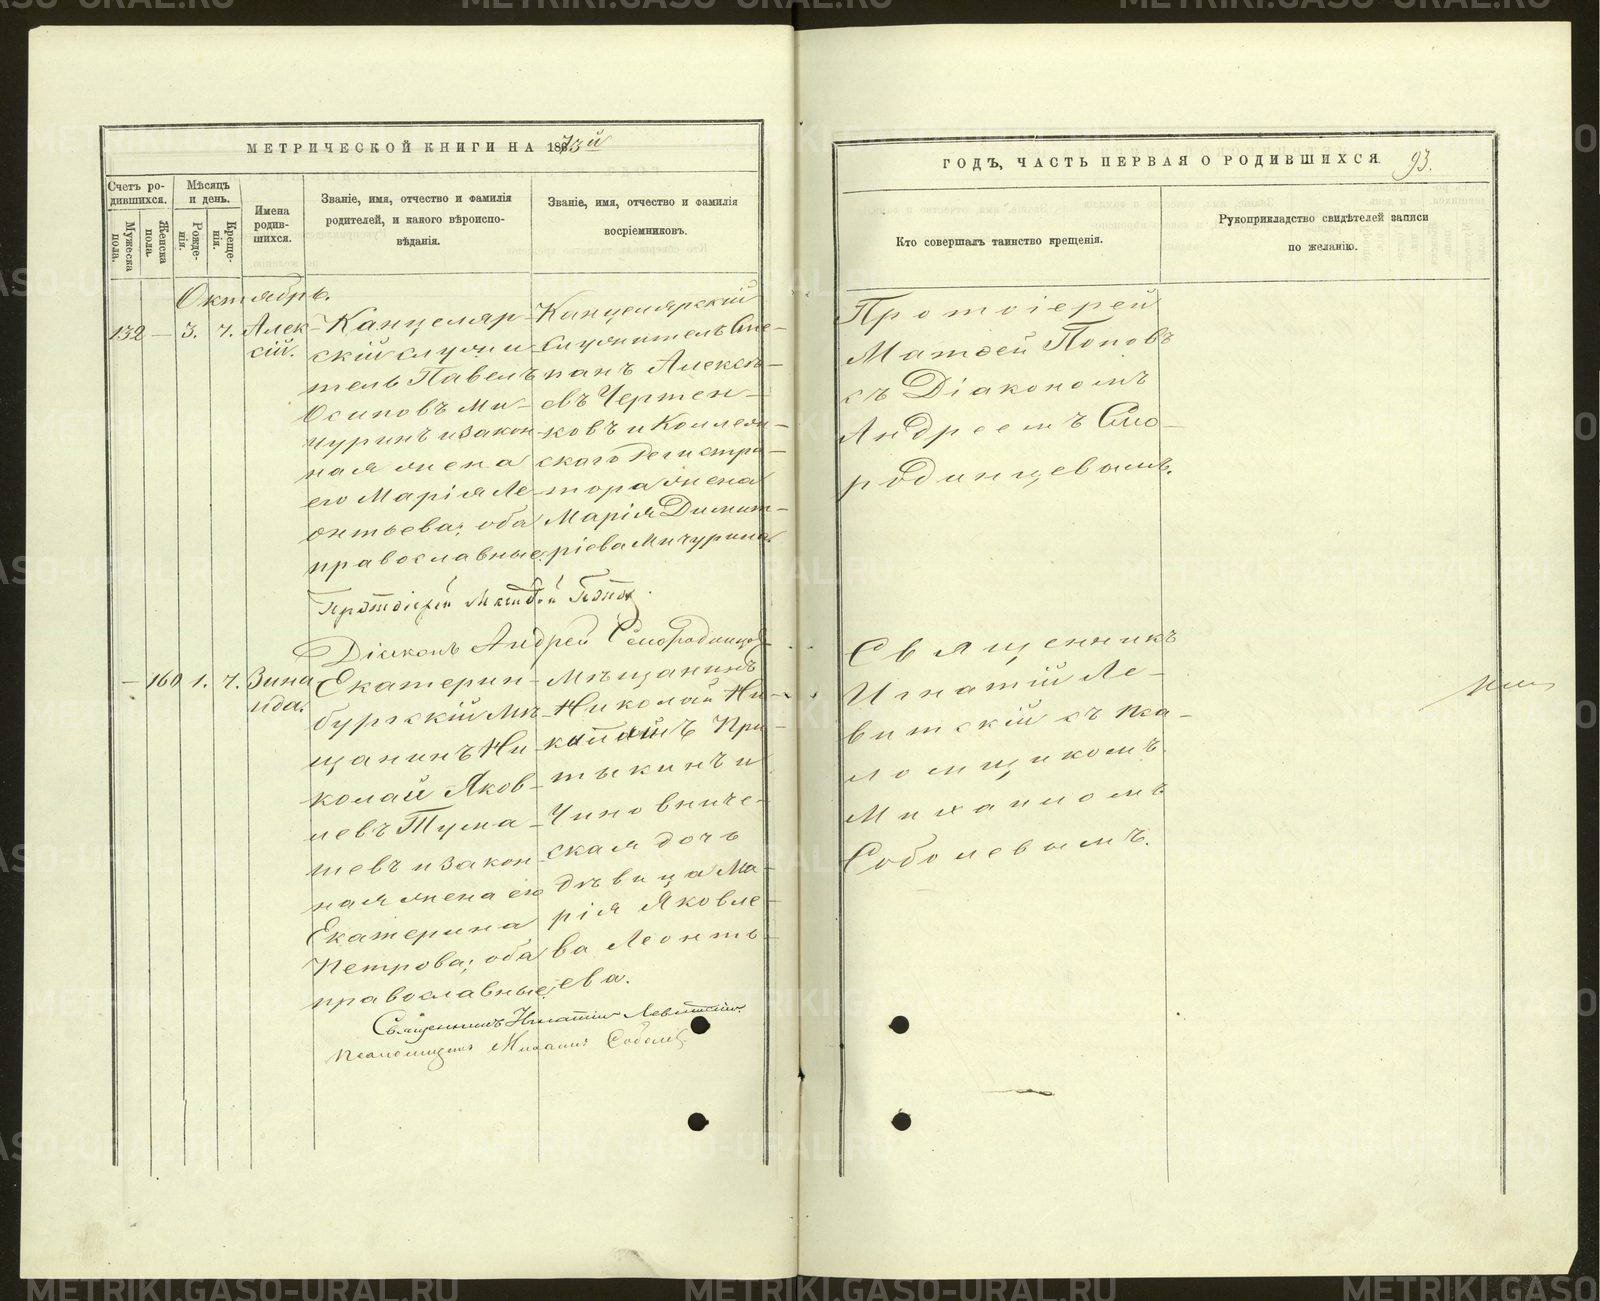 МЕТРИЧЕСКОЙ КНИГИ НА 1873й
Счетъ ро-
дившихся.
Мужеска пола.
Женска пола.
Мѣсяцъ
и день.
Рожде-
нія.
Креще-
нія.
Имена
родив-
шихся.
Званіе, имя, отчество и фамилія
родителей, и какого вѣроиспо-
вѣданія.
Званіе, имя, отчество и фамилія
воспріемниковъ.
Октябрь.
132 — 3. 7. Алек-
сій.
Канцеляр-
скій служи-
тель Павелъ
Осиповъ Ми-
чуринъ и закон-
ная жена
его Марія Ле-
онтьева; оба
православные.
Канцелярскій
служитель Сте-
панъ Алексѣ-
евъ Чертен-
ковъ и Коллеж-
скаго Регистра-
тора жена
Марія Димит-
ріева Мичурина.
Протоіерей Матѳей Поповъ.
Діаконъ Андрей Смородинцовъ
— 160 1. 7. Зина-
ида.
Екатерин-
бургскій мѣ-
щанинъ Ни-
колай Яков-
левъ Тума-
шевъ и закон-
ная жена его
Екатерина
Петрова; оба
православные.
Мѣщанинъ
Николай Ни-
китинъ При-
тыкинъ и
Чиновниче-
ская дочь
дѣвица Ма-
рія Яковле-
ва Леонть-
ева.
Священникъ Игнатій Левитскій.
Псаломщикъ Михаилъ Соболевъ
ГОДЪ, ЧАСТЬ ПЕРВАЯ О РОДИВШИХСЯ. 93.
Кто совершалъ таинство крещенія.
Рукоприкладство свидѣтелей записи
по желанію.
Протоіерей
Матѳей Поповъ
съ Діакономъ
Андреемъ Смо-
родинцевымъ.
Священникъ
Игнатій Ле-
витскій съ пса-
ломщикомъ
Михаиломъ
Соболевымъ.
METRIKI.GASO-URAL.RU